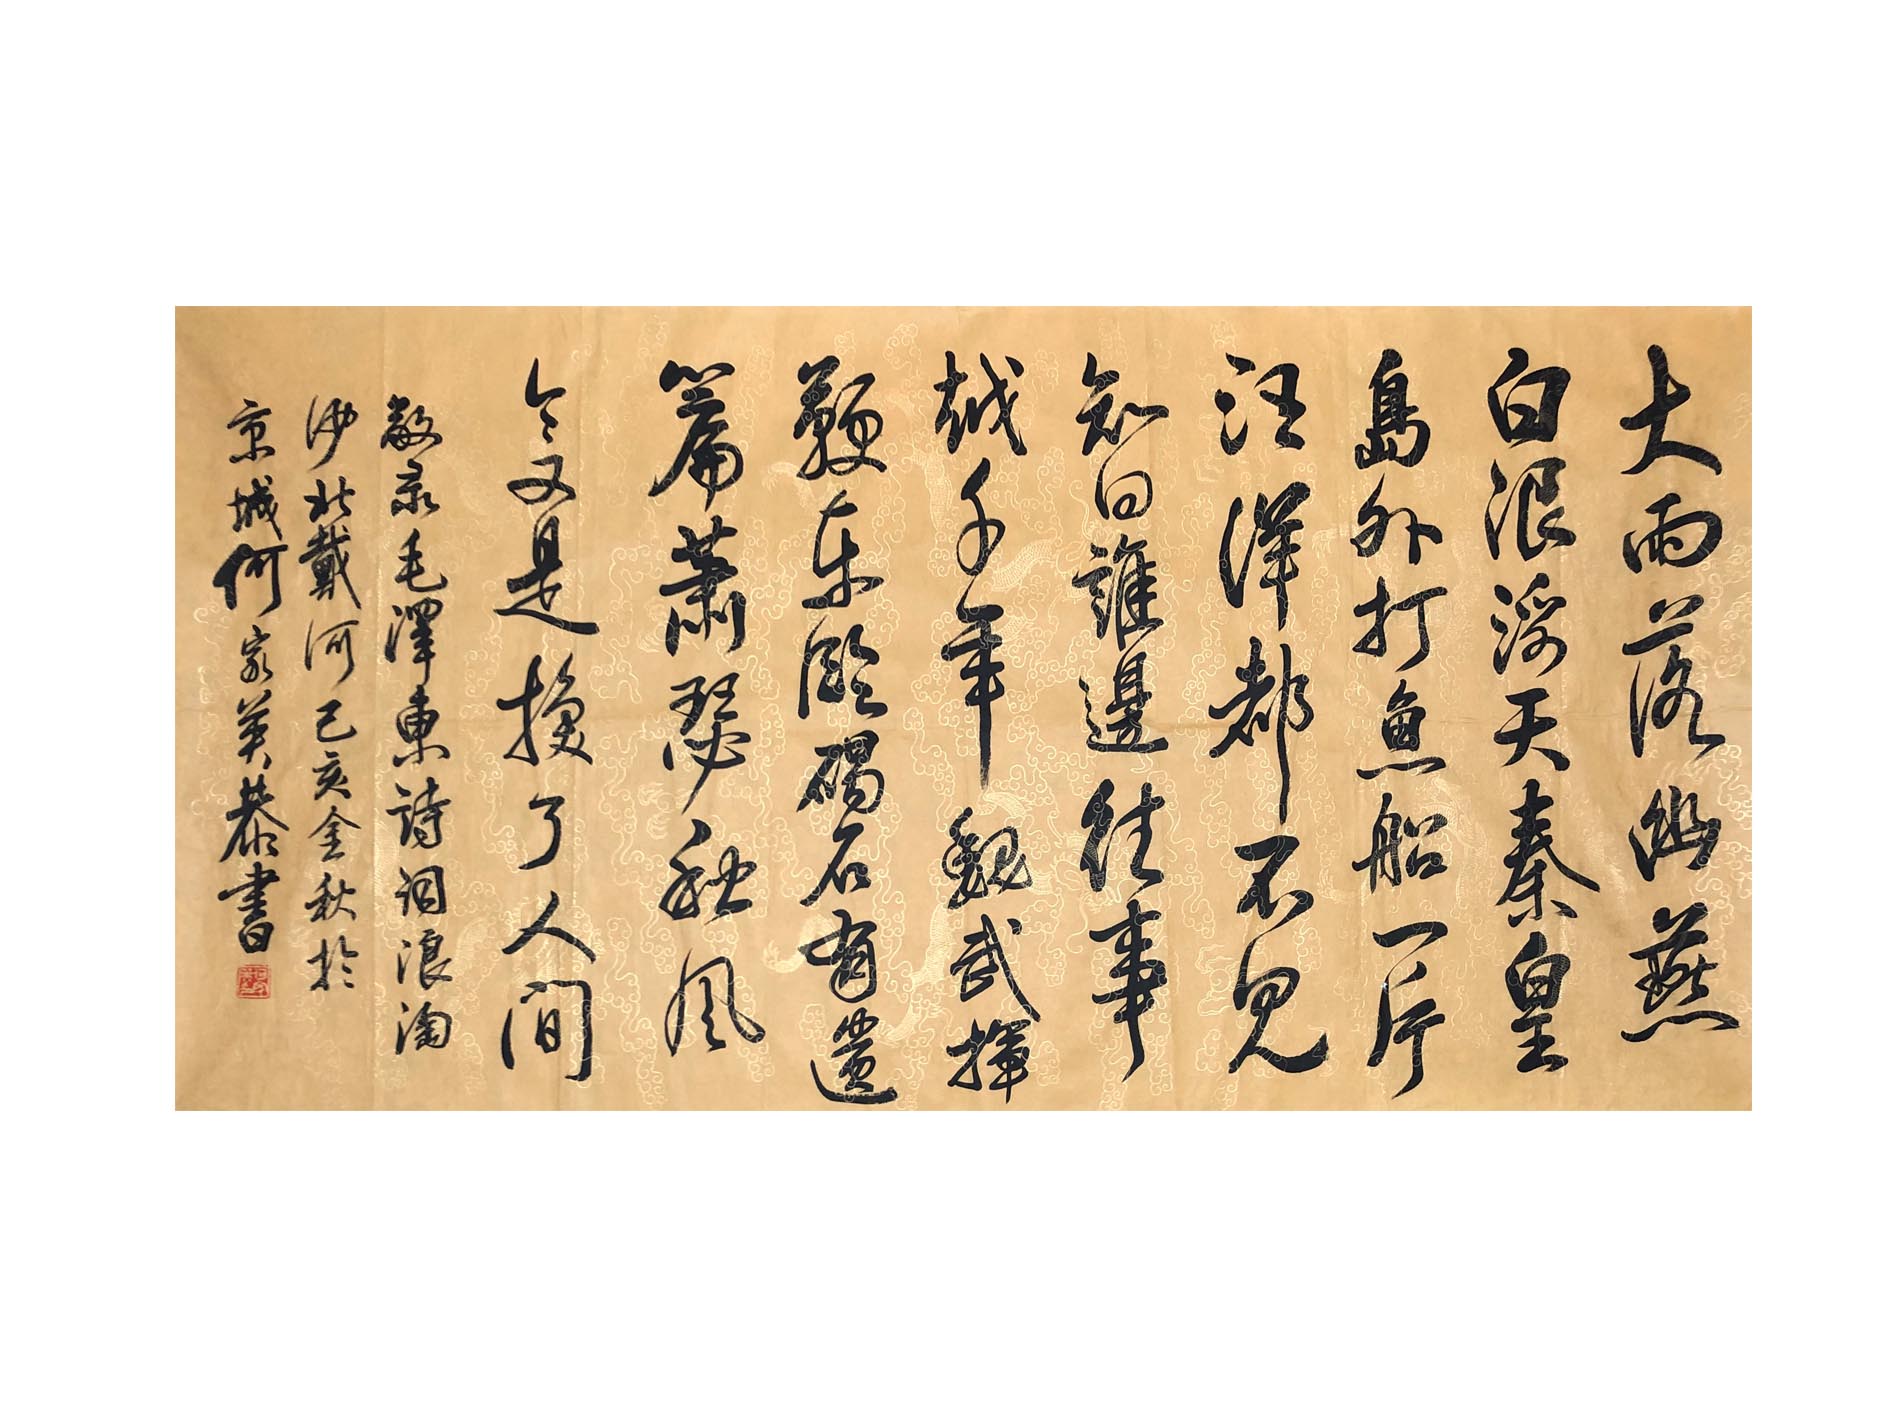 大雨落幽燕
白浪滔天秦皇
島外打魚船一片
汪洋都不見
知向誰邊往事
越千年魏武揮
鞭東臨碣石有遺
篇蕭瑟秋風
今又是換了人間
敬录毛澤東詩詞浪淘
沙北戴河己亥金秋於
京城何家英恭書